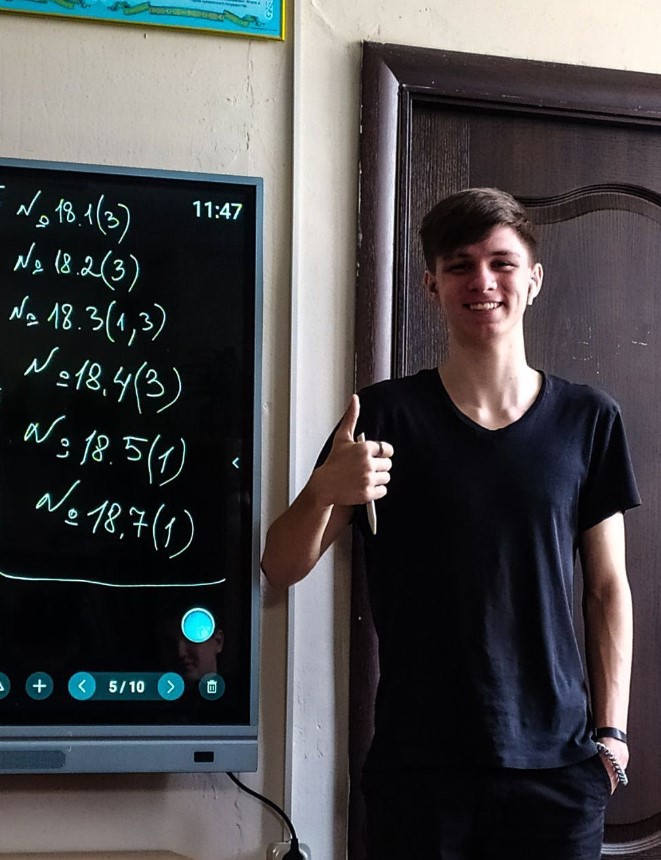 11:47
№ 18.1(3)
№ 18.2(3)
№ 18.3(1,3)
№ 18.4(3)
№ 18.5(1)
№ 18.7(1)
5/10